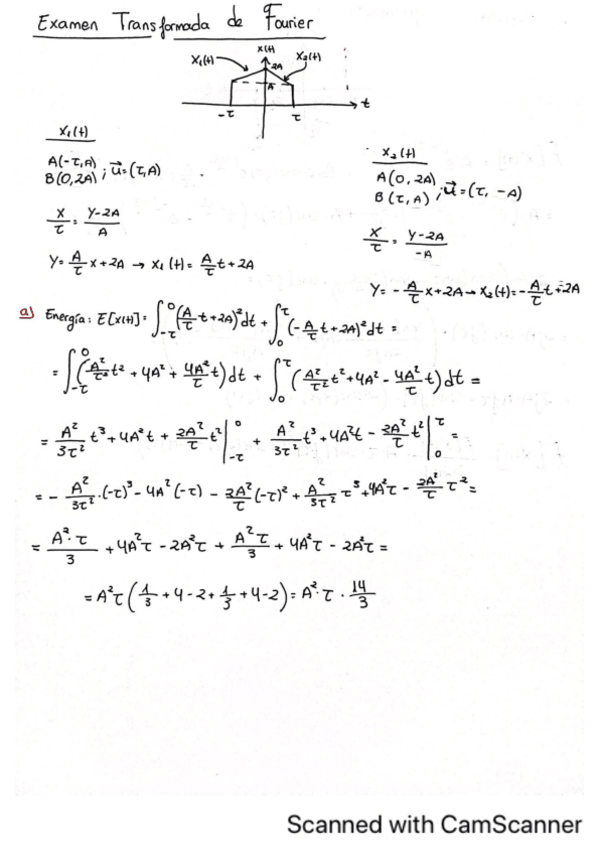 Examen Transformada de Fourier
x(t)
X₁(t) 2A X₂(t)
A
-τ τ t
X₁(t)
A(-τ,A)
B(0,2A) ; u⃗=(τ,A)
X/τ = (Y-2A)/A
Y= A/τ x+2A → X₁(t)= A/τ t+2A
X₂(t)
A(0,2A)
B(τ,A) ; u⃗=(τ,-A)
X/τ = (Y-2A)/-A
Y= -A/τ x+2A → X₂(t)= -A/τ t+2A
a) Energía: E[x(t)]= ∫_{-τ}^{0} (A/τ t+2A)² dt + ∫_{0}^{τ} (-A/τ t+2A)² dt =
= ∫_{-τ}^{0} (A²/τ² t² + 4A² + 4A²/τ t) dt + ∫_{0}^{τ} (A²/τ² t² + 4A² - 4A²/τ t) dt =
= A²/3τ² t³ + 4A² t + 2A²/τ t² |_{-τ}^{0} + A²/3τ² t³ + 4A² t - 2A²/τ t² |_{0}^{τ} =
= - A²/3τ² · (-τ)³ - 4A² (-τ) - 2A²/τ (-τ)² + A²/3τ² τ³ + 4A² τ - 2A²/τ τ² =
= A²·τ/3 + 4A²τ - 2A²τ + A²τ/3 + 4A²τ - 2A²τ =
= A²τ (1/3 + 4 - 2 + 1/3 + 4 - 2) = A²·τ · 14/3
Scanned with CamScanner